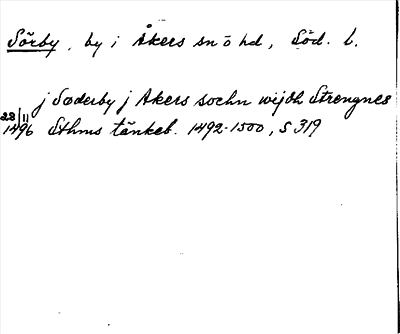 Sörby, by i Åkers sn o hd, Söd. l.
j Soderby j Akers sochn wijdh Strengnes
23/11
1496 Sthms tänkeb. 1492-1500, s 319